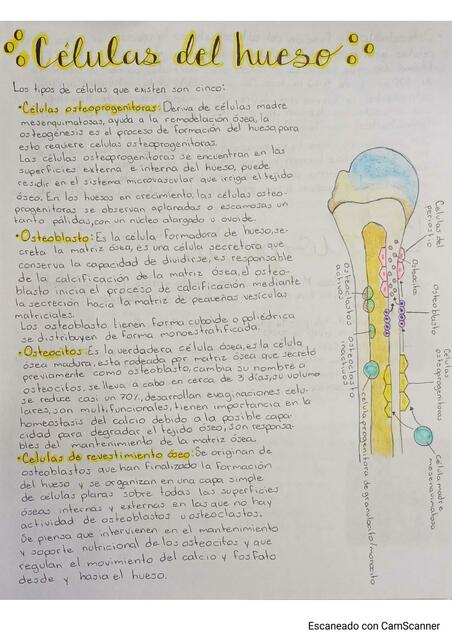 Células del hueso
Los tipos de células que existen son cinco:
•Células osteoprogenitoras: Deriva de células madre
mesenquimatosas, ayuda a la remodelación ósea, la
osteogénesis es el proceso de formación del hueso, para
esto requiere celulas osteoprogenitoras.
Las células osteoprogenitoras se encuentran en las
superficies externa e interna del hueso, puede
residir en el sistema microvascular que irriga el tejido
óseo. En los huesos en crecimiento, las células osteo-
progenitoras se observan aplanadas o escamosas un
tanto pálidas, con un núcleo alargado u ovoide.
•Osteoblasto: Es la célula formadora de hueso, se-
creta la matriz ósea, es una célula secretora que
conserva la capacidad de dividirse, es responsable
de la calcificación de la matriz ósea, el osteo-
blasto inicia el proceso de calcificación mediante
la secreción hacia la matriz de pequeñas vesículas
matriciales.
Los osteoblasto tienen forma cuboide o poliédrica
se distribuyen de forma monoestratificada.
•Osteocitos: Es la verdadera célula ósea, es la célula
ósea madura, esta rodeada por matriz ósea que secretó
previamente como osteoblasto, cambia su nombre a
osteocitos, se lleva a cabo en cerca de 3 días, su volumen
se reduce casi un 70%, desarrollan evaginaciones celu-
lares, son multifuncionales, tienen importancia en la
homeostasis del calcio debido a la posible capa-
cidad para degradar el tejido óseo, son responsa-
bles del mantenimiento de la matriz ósea.
•Celulas de revestimiento óseo: Se originan de
osteoblastos que han finalizado la formación
del hueso y se organizan en una capa simple
de celulas planas sobre todas las superficies
óseas internas y externas en las que no hay
actividad de osteoblastos u osteoclastos.
Se piensa que intervienen en el mantenimiento
y soporte nutricional de los osteocitos y que
regulan el movimiento del calcio y fosfato
desde y hasia el hueso.
Celulas del
periostio
Osteocito
osteoblasto
Celulas
osteoprogenitoras
Célula madre
mesenquimatosa
osteoclastos
activos
osteoclasto
inactivos
célula progenitora de granulocito/monocito
Escaneado con CamScanner